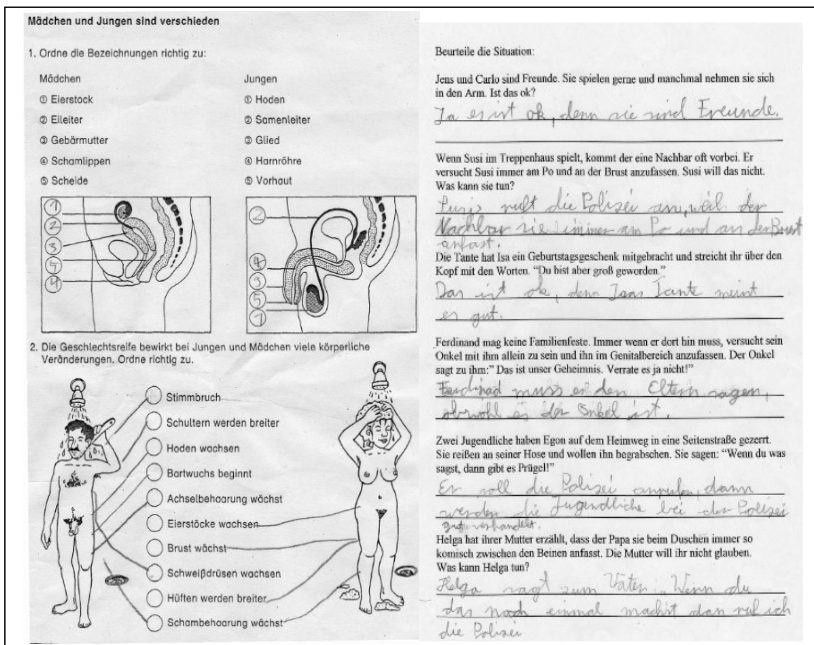 Mädchen und Jungen sind verschieden
1. Ordne die Bezeichnungen richtig zu:
Mädchen
① Eierstock
② Eileiter
③ Gebärmutter
④ Schamlippen
⑤ Scheide
Jungen
① Hoden
② Samenleiter
③ Glied
④ Harnröhre
⑤ Vorhaut
1
2
3
5
4
2
4
3
5
1
2. Die Geschlechtsreife bewirkt bei Jungen und Mädchen viele körperliche
Veränderungen. Ordne richtig zu.
Stimmbruch
Schultern werden breiter
Hoden wachsen
Bartwuchs beginnt
Achselbehaarung wächst
Eierstöcke wachsen
Brust wächst
Schweißdrüsen wachsen
Hüften werden breiter
Schambehaarung wächst
Beurteile die Situation:
Jens und Carlo sind Freunde. Sie spielen gerne und manchmal nehmen sie sich
in den Arm. Ist das ok?
Ja es ist ok, denn sie sind Freunde.
Wenn Susi im Treppenhaus spielt, kommt der eine Nachbar oft vorbei. Er
versucht Susi immer am Po und an der Brust anzufassen. Susi will das nicht.
Was kann sie tun?
ruft die Polizei an, weil der
Nachbar sie immer am Po und an der Brust
anfast.
Die Tante hat Isa ein Geburtstagsgeschenk mitgebracht und streicht ihr über den
Kopf mit den Worten. "Du bist aber groß geworden."
Das ist ok, denn Isas Tante meint
es gut.
Ferdinand mag keine Familienfeste. Immer wenn er dort hin muss, versucht sein
Onkel mit ihm allein zu sein und ihn im Genitalbereich anzufassen. Der Onkel
sagt zu ihm:" Das ist unser Geheimnis. Verrate es ja nicht!"
Ferdinad muss es den Eltern sagen,
obwohl es der Onkel ist.
Zwei Jugendliche haben Egon auf dem Heimweg in eine Seitenstraße gezerrt.
Sie reißen an seiner Hose und wollen ihn begrabschen. Sie sagen: "Wenn du was
sagst, dann gibt es Prügel!"
Er soll die Polizei anrufen, dann
werden die Jugendliche bei der Polizei
Helga hat ihrer Mutter erzählt, dass der Papa sie beim Duschen immer so
komisch zwischen den Beinen anfasst. Die Mutter will ihr nicht glauben.
Was kann Helga tun?
Helga sagt zum Vater: Wenn du
das noch einmal machst dan ruf ich
die Polizei